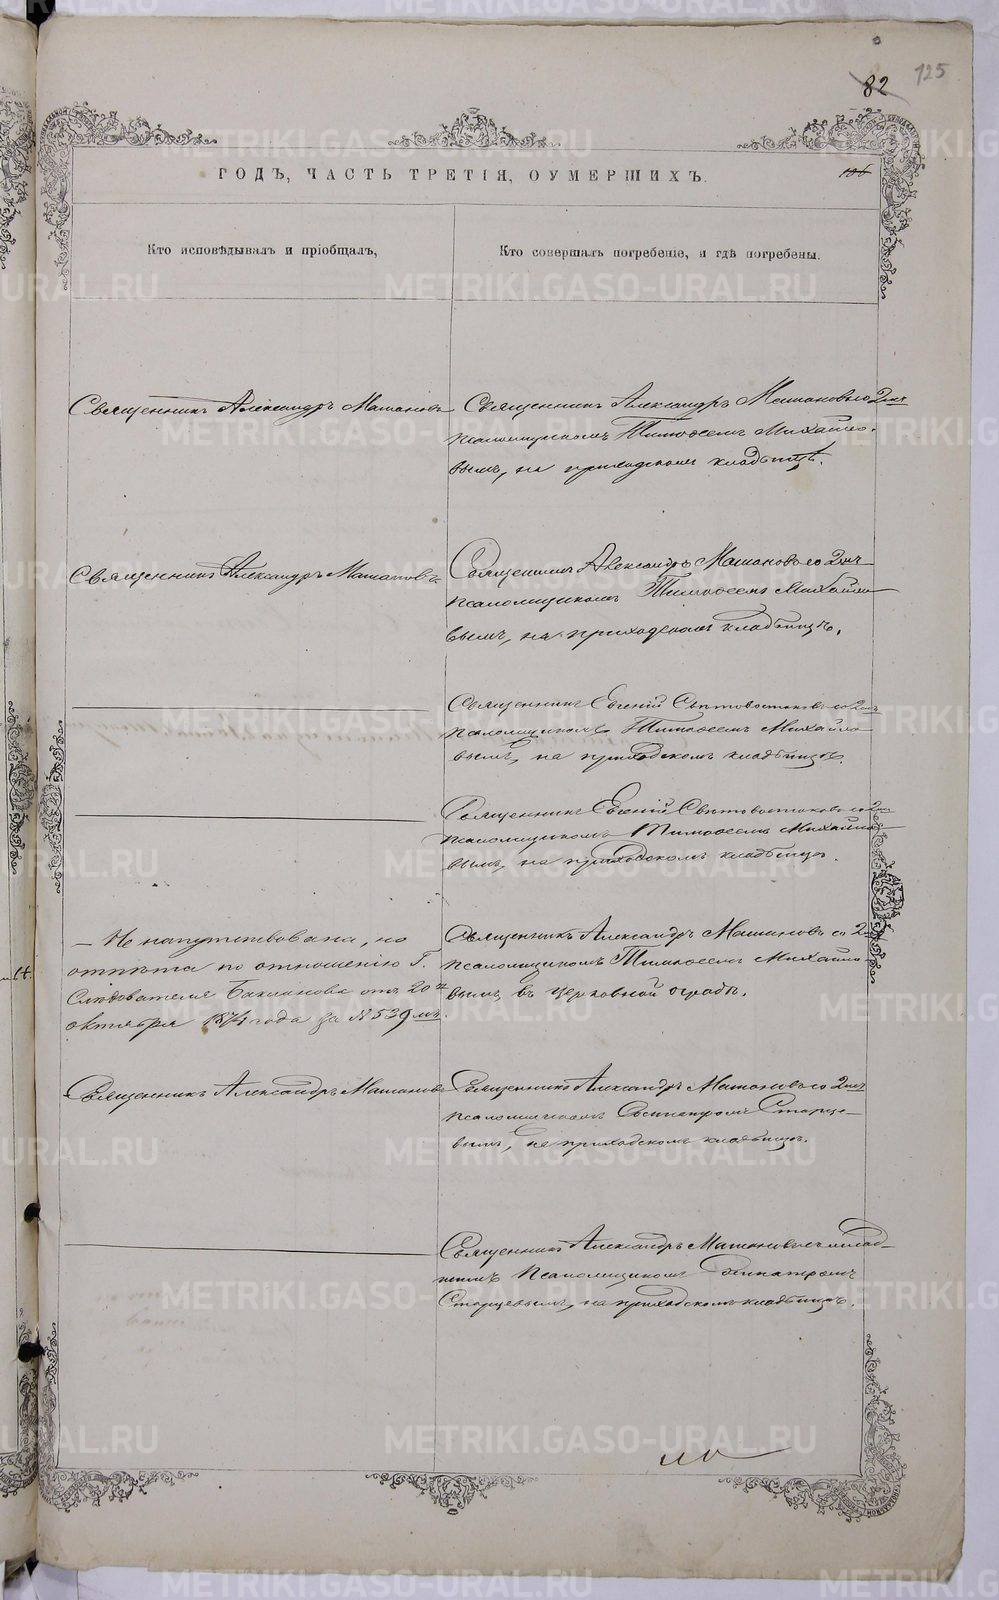 82
125
ГОДЪ, ЧАСТЬ ТРЕТІЯ, ОУМЕРШИХЪ.
106
Кто исповѣдывалъ и пріобщалъ,
Кто совершалъ погребеніе, и гдѣ погребены.
Священникъ Александръ Машановъ
Священникъ Александръ Машановъ со 2мъ
псаломщикомъ Тимофеемъ Михайло-
вымъ, на приходскомъ кладбищѣ.
Священникъ Александръ Машановъ
Священникъ Александръ Машановъ со 2мъ
псаломщикомъ Тимофеемъ Михайло
вымъ, на приходскомъ кладбищѣ.
Священникъ Евгеній Свѣтовостоковъ со 2мъ
псаломщикомъ Тимофеемъ Михайло
вымъ, на приходскомъ кладбищѣ.
Священникъ Евгеній Свѣтовостоковъ со 2мъ
псаломщикомъ Тимофеемъ Михайло
вымъ, на приходскомъ кладбищѣ.
— Не напутствована, но
отпѣта по отношенію Г.
Слѣдователя Бакланова отъ 20го
октября 1874 года за № 539мъ.
Священникъ Александръ Машановъ со 2мъ
псаломщикомъ Тимофеемъ Михайло-
вымъ въ церковной оградѣ.
Священникъ Александръ Машановъ
Священникъ Александръ Машановъ со 2мъ
псаломщикомъ Старце-
вымъ, на приходскомъ кладбищѣ.
Священникъ Александръ Машановъ съ млад-
шимъ псаломщикомъ
Старцевымъ, на приходскомъ кладбищѣ.
METRIKI.GASO-URAL.RU